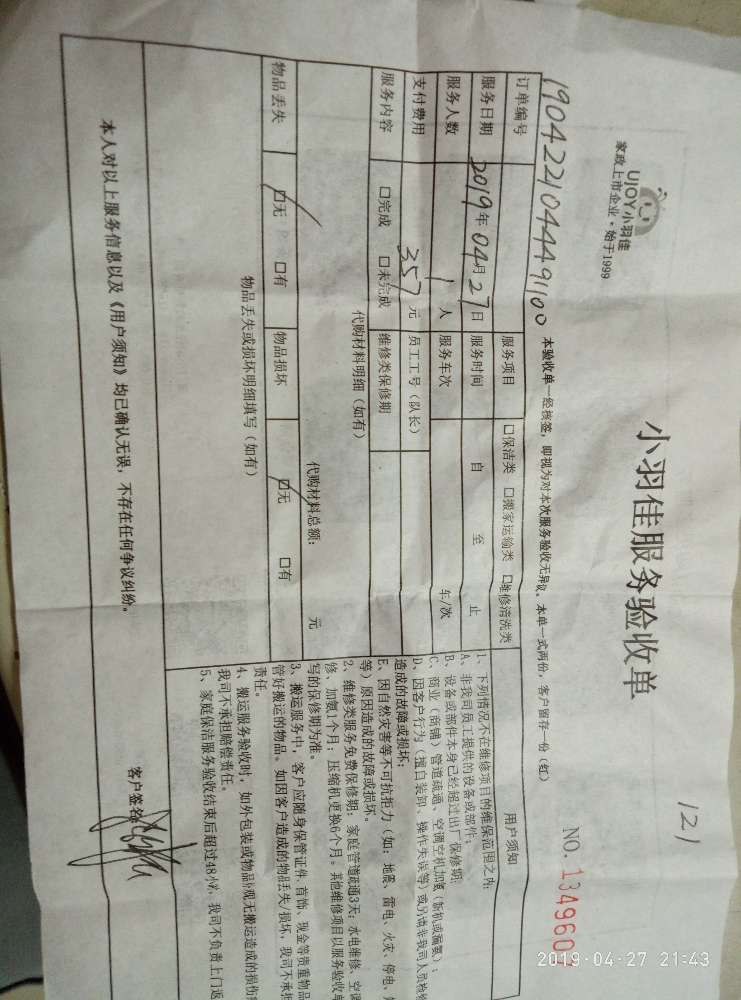 121
小羽佳服务验收单
UJOY小羽佳
家政上市企业·始于1999
NO. 134960
本验收单一经核签，即视为对本次服务验收无异议，本单一式两份，客户留存一份（红）
订单编号 1904221044491100
服务项目 口保洁类 口搬家运输类 口维修清洗类
服务日期 2019年04月27日 服务时间 自 至 止
服务人数 1人 服务车次 车/次
支付费用 357元 员工工号（队长）
服务内容 口完成 口未完成 维修类保修期
代购材料明细（如有）
代购材料总额： 元
物品丢失 口无 口有 物品损坏 口无 口有
物品丢失或损坏明细填写（如有）
用户须知
1、下列情况不在维修项目的维保范围之内：
A、非我司员工提供的设备或部件；
B、设备或部件本身已经超过出厂保修期；
C、商业（商铺）管道疏通、空调空机加氨（新机或漏氨）；
D、因客户行为（擅自装卸、操作失误等）或另请非我司人员检
造成的故障或损坏；
E、因自然灾害等不可抗拒力（如：地震、雷电、火灾、停电、
等）原因造成的故障或损坏。
2、维修类服务免费保修期：家庭管道疏通3天；水电维修、空
修、加氨1个月；压缩机更换6个月。其他维修项目以服务验收
写的保修期为准。
3、搬运服务中，客户应随身保管证件、首饰、现金等贵重物品
管好搬运的物品。如因客户造成的物品丢失/损坏，我司不承
责任。
4、搬运服务验收时，如外包装或物品外观无搬运造成的损伤
我司不承担赔偿责任。
5、家庭保洁服务验收结束后超过48小时，我司不负责上门返
本人对以上服务信息以及《用户须知》均已确认无误，不存在任何争议纠纷。
客户签名
2019-04-27 21:43